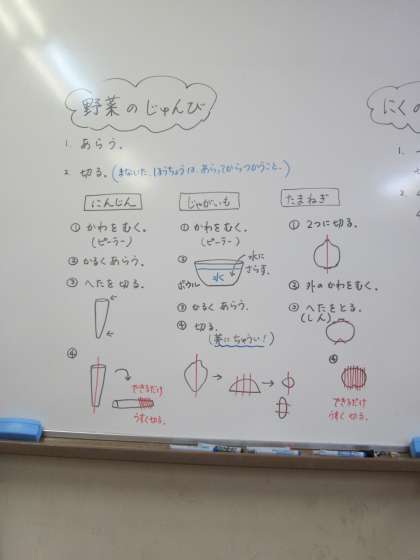 野菜のじゅんび
1. あらう.
2. 切る.(まないた、ほうちょうは、あらってからつかうこと。)
にんじん
① かわをむく.
(ピーラー)
② かるくあらう.
③ へたを切る.
④
できるだけ
うすく切る.
じゃがいも
① かわをむく.
(ピーラー)
②
水に
さらす.
ボウル
水
③ かるくあらう.
④ 切る.
たまねぎ
① 2つに切る.
② 外のかわをむく.
③ へたをとる.
(しん)
④
できるだけ
うすく切る.
にくの
1.
2.